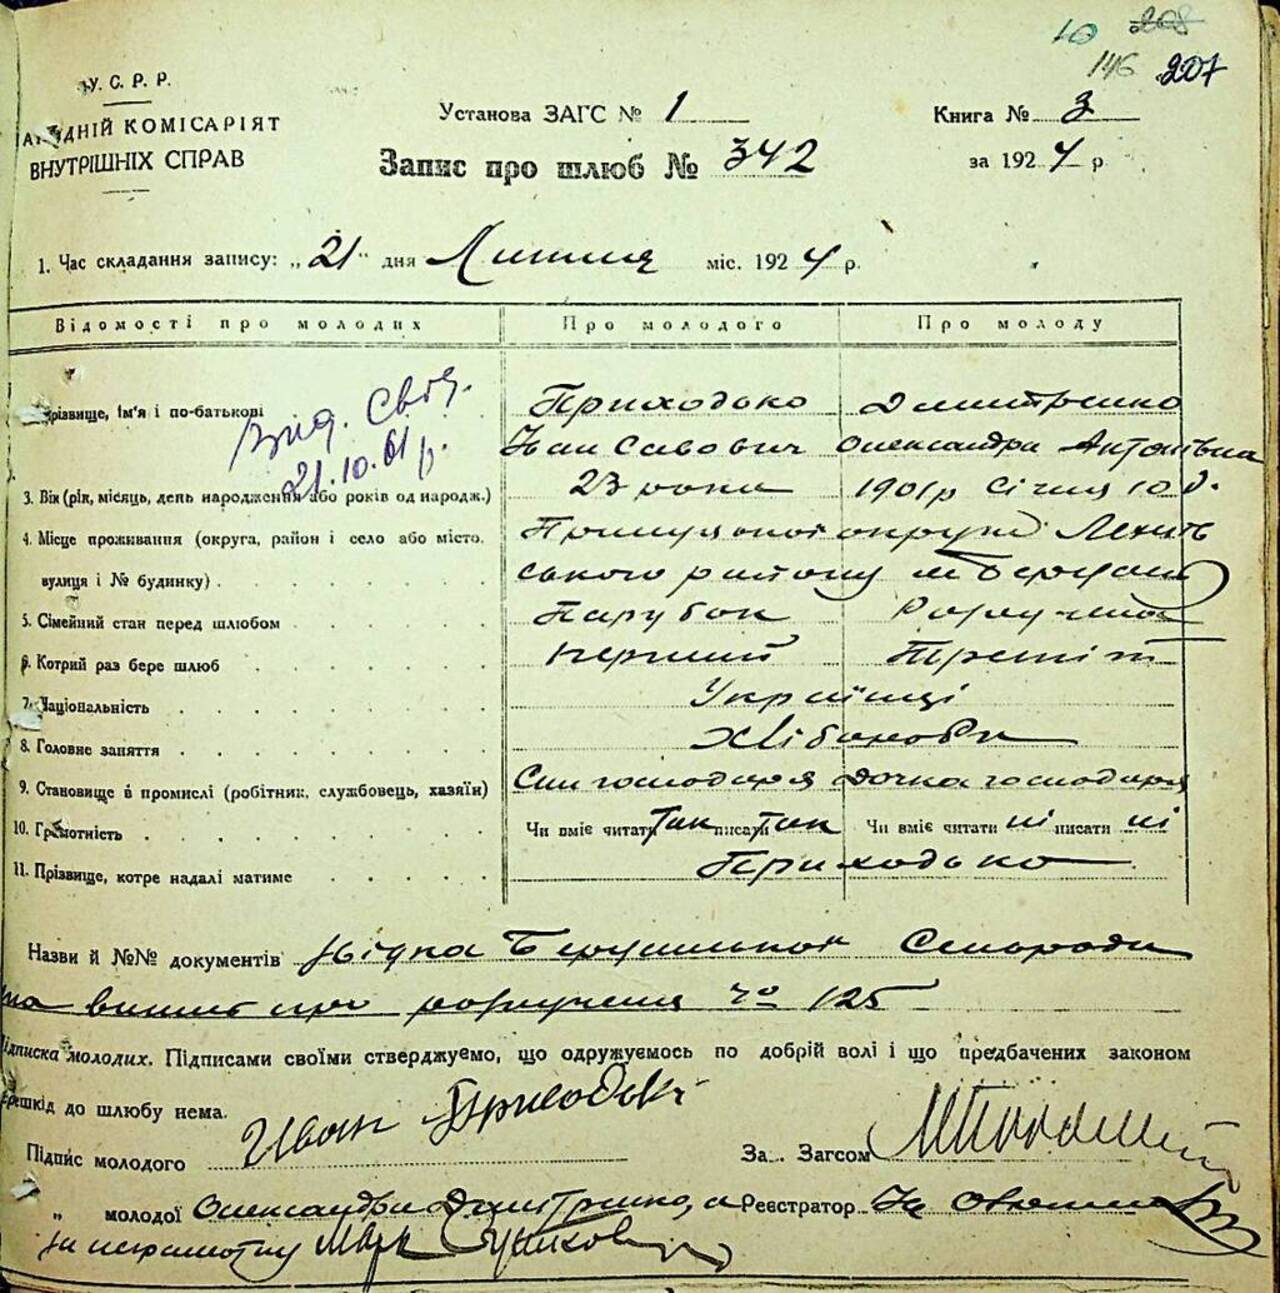 10 208
146 207
У. С. Р. Р.
НАРОДНІЙ КОМІСАРІЯТ
ВНУТРІШНІХ СПРАВ
Установа ЗАГС № 1
Книга № 3
Запис про шлюб № 342
за 1924 р.
1. Час складання запису: „21" дня Липня міс. 1924 р.
Відомості про молодих Про молодого Про молоду
Прізвище, ім'я і по-батькові Приходько Дмитренко
Вид. Свід. Іван Савович Олександра Антонівна
21.10.61 р.
3. Вік (рік, місяць, день народження або років од народж.) 23 роки 1901 р Січня 10 д.
4. Місце проживання (округа, район і село або місто, Прилуцької округи
вулиця і № будинку) ського району
5. Сімейний стан перед шлюбом Парубок Розлучена
6. Котрий раз бере шлюб перший Третій
7. Національність Українці
8. Головне заняття Хліборобі
9. Становище в промислі (робітник, службовець, хазяїн) Син господаря дочка господаря
10. Грамотність Чи вміє читати так писати так Чи вміє читати ні писати ні
11. Прізвище, котре надалі матиме Приходько
Назви й №№ документів
про розлучення № 125
Підписка молодих. Підписами своїми стверджуємо, що одружуємось по добрій волі і що предбачених законом
перешкід до шлюбу нема.
Підпис молодого Иван За. Загсом
„ молодої Олександра Дмитренко, а Реєстратор
за неграмотну Марк